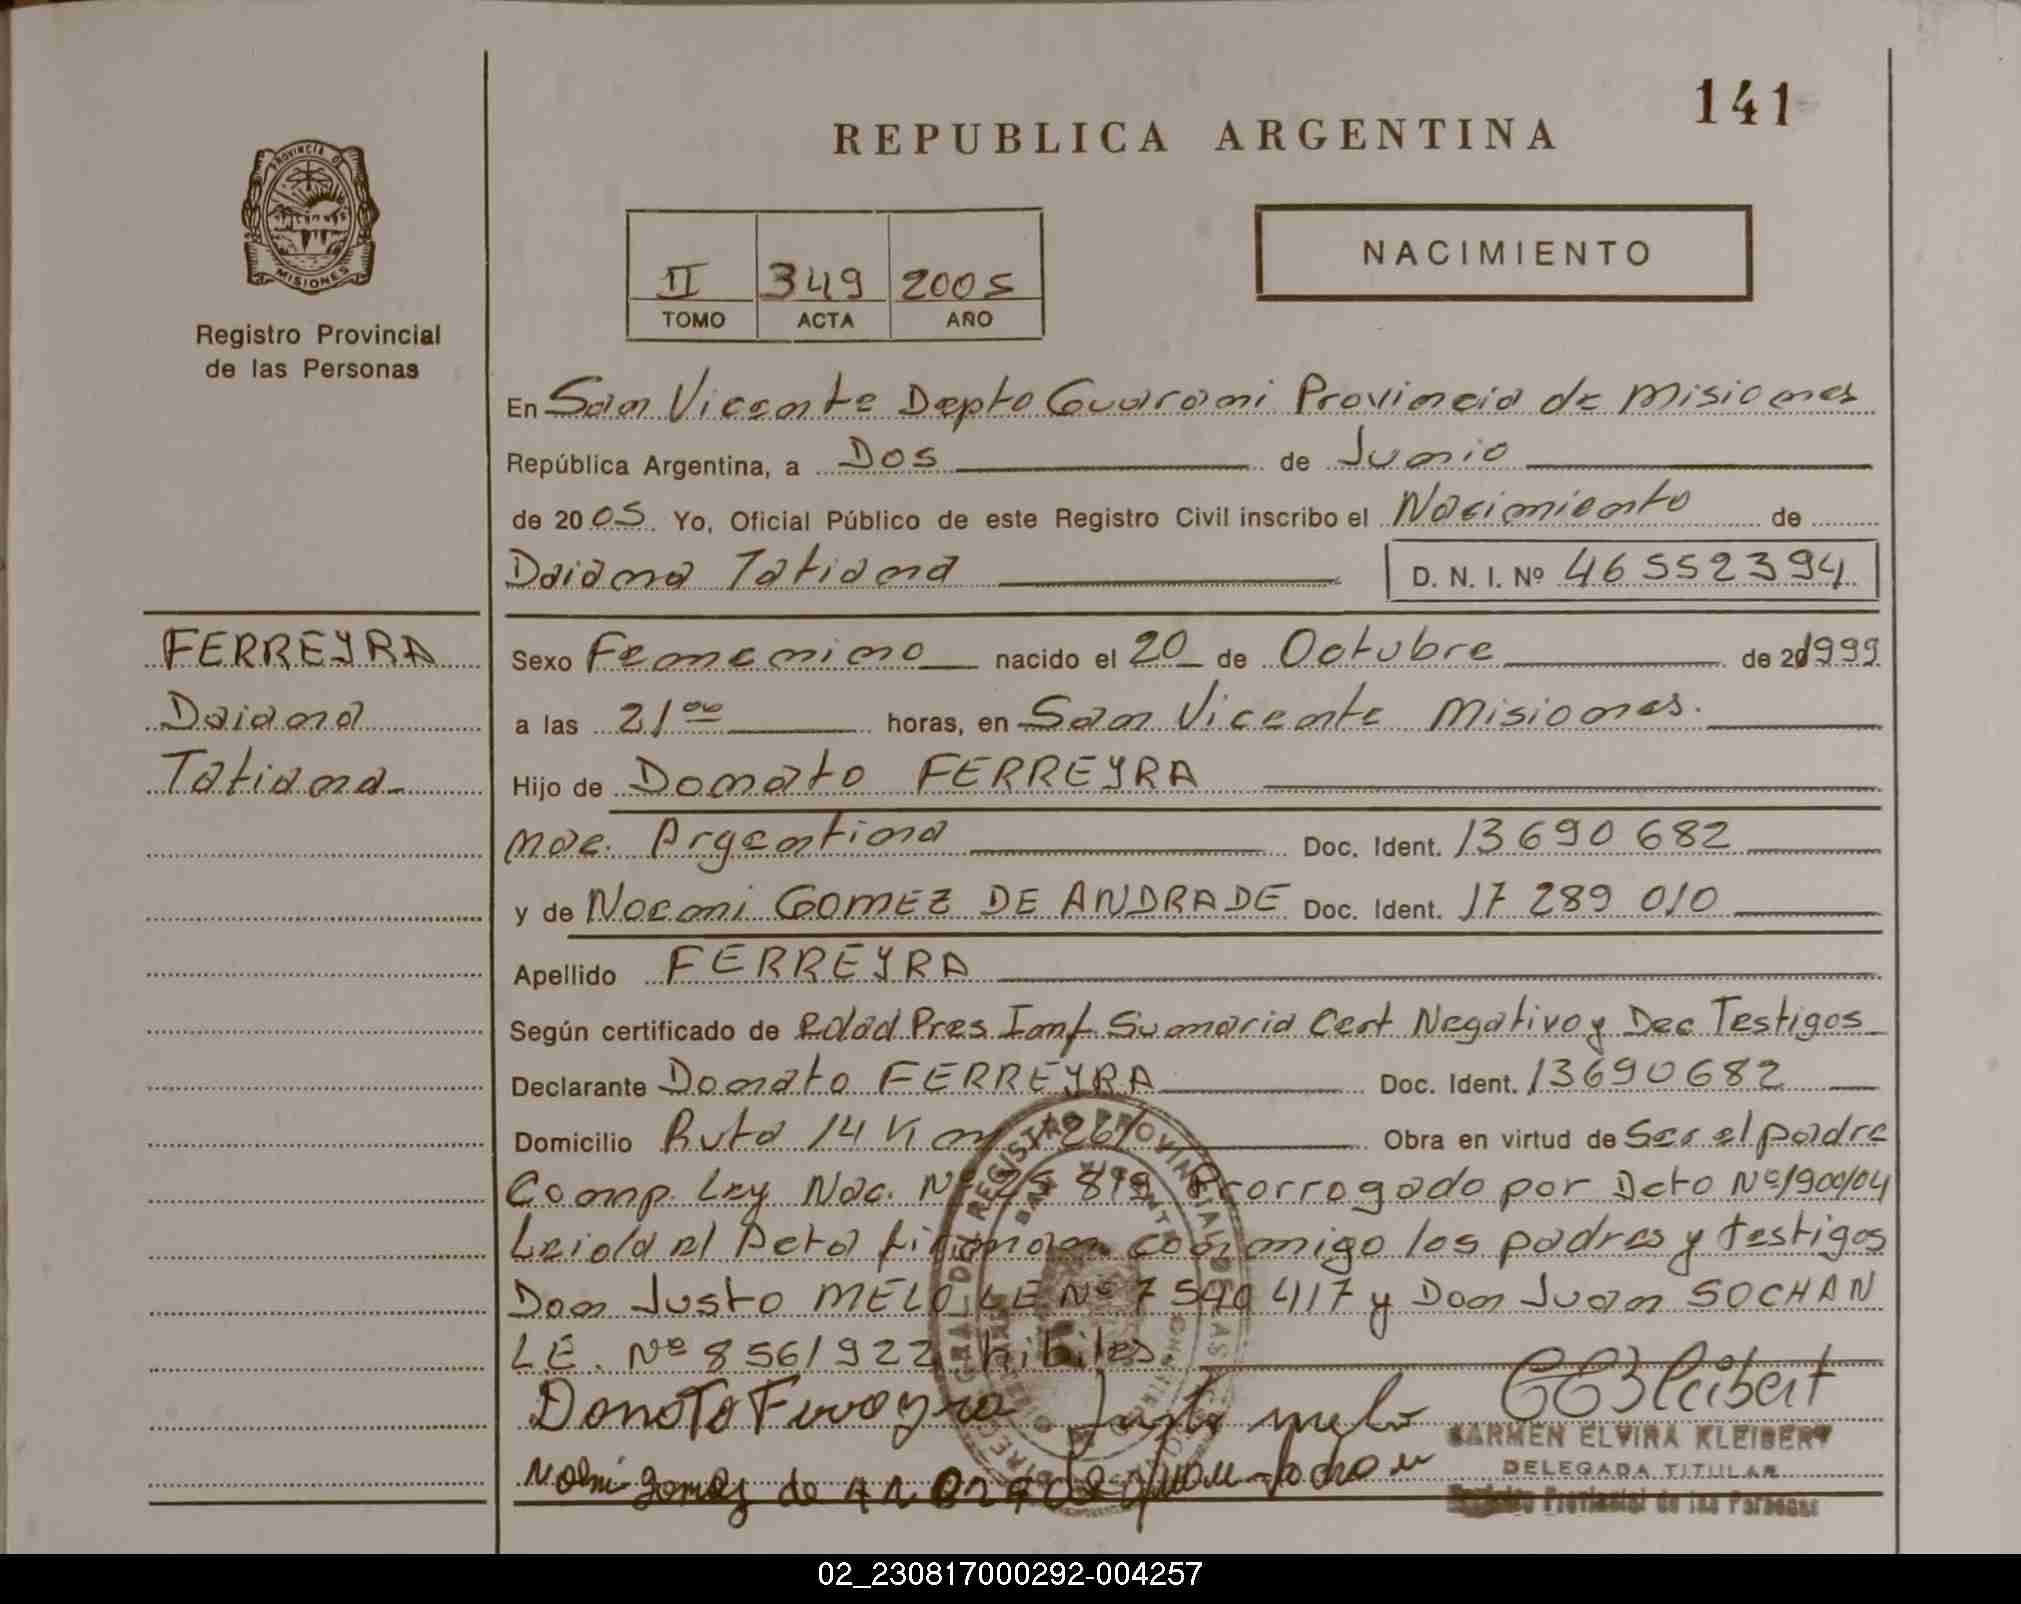 141
REPUBLICA ARGENTINA
PROVINCIA DE
MISIONES
Registro Provincial
de las Personas
NACIMIENTO
II 349 2005
TOMO ACTA AÑO
En San Vicente Depto Guarani Provincia de Misiones
República Argentina, a Dos de Junio
de 2005 Yo, Oficial Público de este Registro Civil inscribo el Nacimiento de
Daiana Tatiana D. N. I. Nº 46552394
FERREYRA
Daiana
Tatiana
Sexo Femenino nacido el 20 de Octubre de 1999
a las 21 00 horas, en San Vicente Misiones.
Hijo de Donato FERREYRA
Nac. Argentina Doc. Ident. 13 690 682
y de Noemi GOMEZ DE ANDRADE Doc. Ident. 17 289 010
Apellido FERREYRA
Según certificado de Edad Pres. Inf. Sumaria Cert Negativo y Dec Testigos
Declarante Donato FERREYRA Doc. Ident. 13690682
Domicilio Ruta 14 Km 261 Obra en virtud de Ser el padre
Comp. Ley Nac. Nº 25 819 Prorrogado por Dcto Nº 1900/04
Leida el Acta firman conmigo los padres y testigos
Don Justo MELO LE Nº 7590417 y Don Juan SOCHAN
LE. Nº 8561922 hábiles.
Donato Ferreyra Justo melo
CEKleibert
CARMEN ELVIRA KLEIBERT
DELEGADA TITULAR
Registro Provincial de las Personas
Noemi gomez de andrade Juan Sochan
02_230817000292-004257